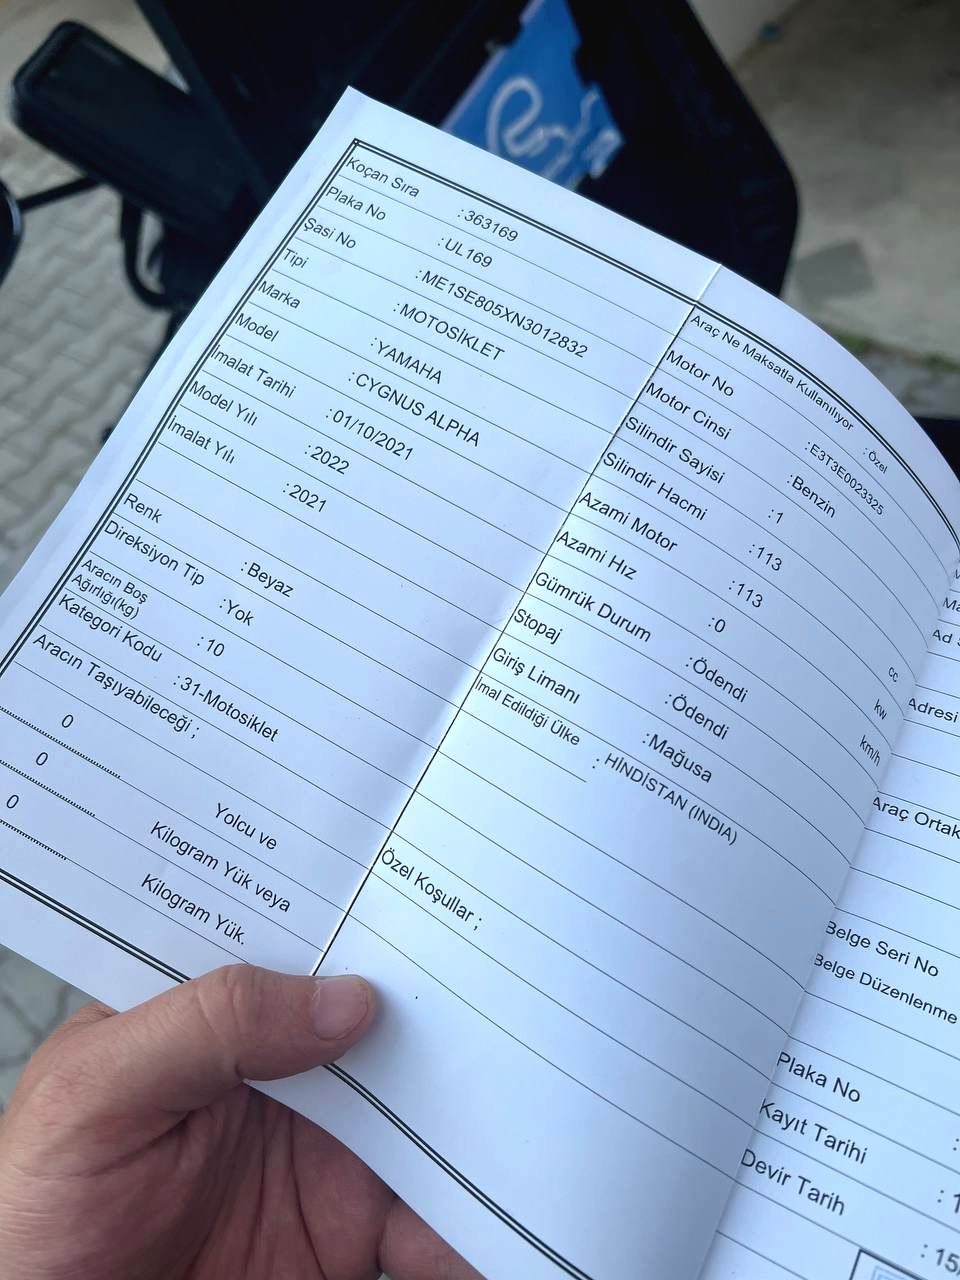 Koçan Sıra :363169
Plaka No :UL169
Şasi No :ME1SE805XN3012832
Tipi :MOTOSİKLET
Marka :YAMAHA
Model :CYGNUS ALPHA
İmalat Tarihi :01/10/2021
Model Yılı :2022
İmalat Yılı :2021
Renk :Beyaz
Direksiyon Tip :Yok
Aracın Boş
Ağırlığı(kg) :10
Kategori Kodu :31-Motosiklet
Aracın Taşıyabileceği ;
0 Yolcu ve
0 Kilogram Yük veya
0 Kilogram Yük.
Araç Ne Maksatla Kullanılıyor :Özel
Motor No :E3T3E0023325
Motor Cinsi :Benzin
Silindir Sayisi :1
Silindir Hacmi :113 cc
Azami Motor :113 kw
Azami Hız :0 km/h
Gümrük Durum :Ödendi
Stopaj :Ödendi
Giriş Limanı :Mağusa
İmal Edildiği Ülke : HİNDİSTAN (INDIA)
Özel Koşullar ;
Adresi
Araç Ortak
Belge Seri No
Belge Düzenlenme
Plaka No :
Kayıt Tarihi : 1
Devir Tarih : 15